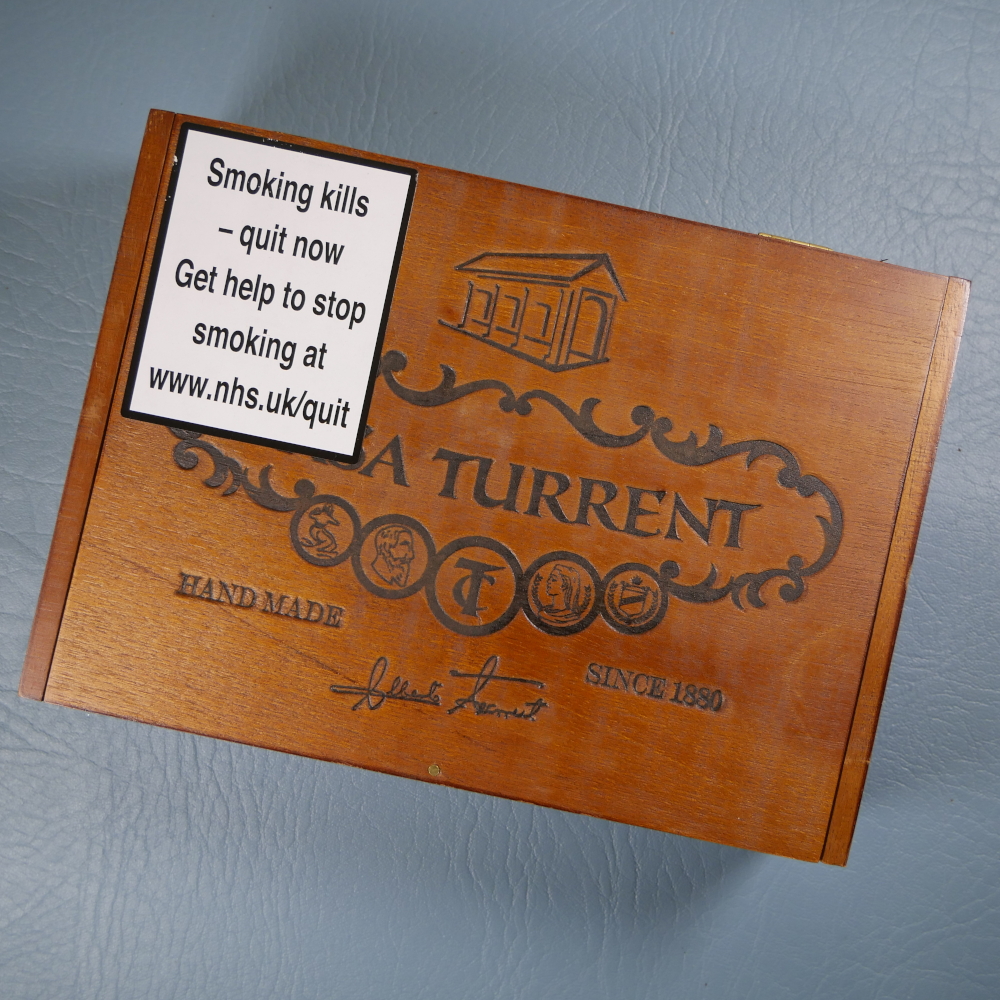 Smoking kills
– quit now
Get help to stop
smoking at
www.nhs.uk/quit
SA TURRENT
TC
HAND MADE
SINCE 1880
Alberto Turrent